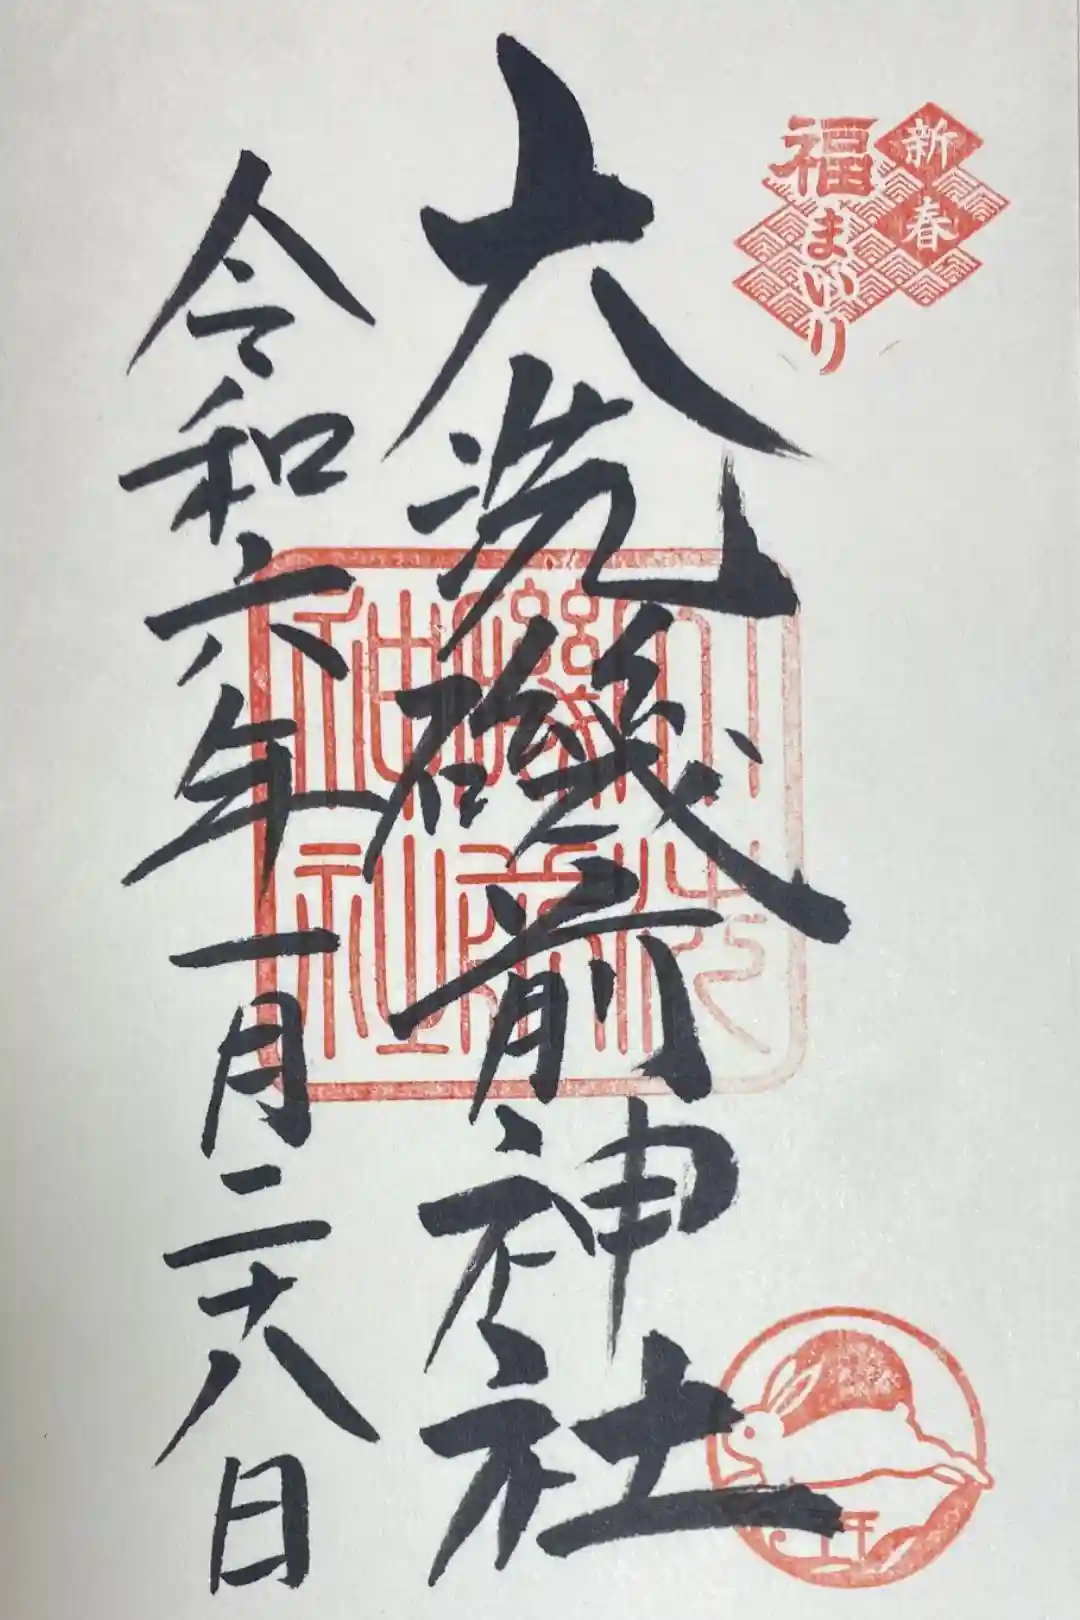 新春
福まいり
大洗磯前神社
大洗
磯前
神社
令和六年一月二十八日